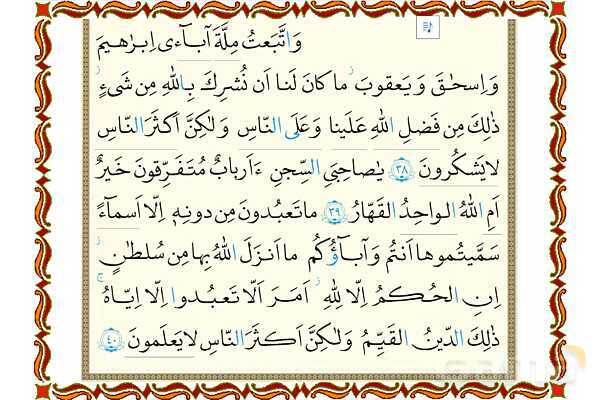 وَاتَّبَعتُ مِلَّةَ آباءي اِبرٰهيمَ
وَ اِسحٰقَ وَ يَعقوبَ ۚ ما كانَ لَنا اَن نُشرِكَ بِاللّٰهِ مِن شَيءٍ ۚ
ذٰلِكَ مِن فَضلِ اللّٰهِ عَلَينا وَ عَلَى النّاسِ وَ لٰكِنَّ اَكثَرَ النّاسِ
لا يَشكُرونَ ﴿٣٨﴾ يٰصاحِبَيِ السِّجنِ ءَاَربابٌ مُتَفَرِّقونَ خَيرٌ
اَمِ اللّٰهُ الواحِدُ القَهّارُ ﴿٣٩﴾ ما تَعبُدونَ مِن دونِهِ اِلّا اَسماءً
سَمَّيتُموها اَنتُم وَ آباؤُكُم ما اَنزَلَ اللّٰهُ بِها مِن سُلطانٍ ۚ
اِنِ الحُكمُ اِلّا لِلّٰهِ ۚ اَمَرَ اَلّا تَعبُدوا اِلّا اِيّاهُ ۚ
ذٰلِكَ الدّينُ القَيِّمُ وَ لٰكِنَّ اَكثَرَ النّاسِ لا يَعلَمونَ ﴿٤٠﴾